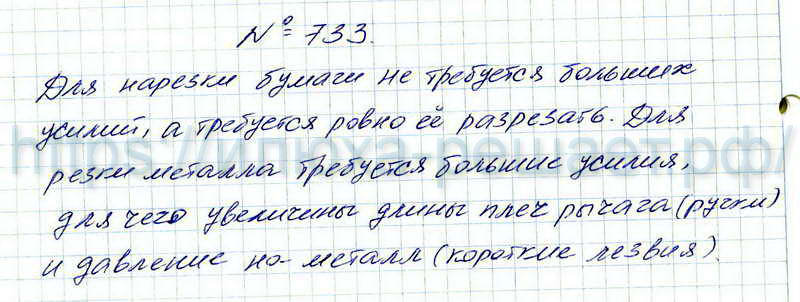 № 733.
Для нарезки бумаги не требуется больших
усилий, а требуется ровно её разрезать. Для
резки металла требуется большие усилия,
для чего увеличины длины плеч рычага (ручки)
и давление на металл (короткие лезвия).